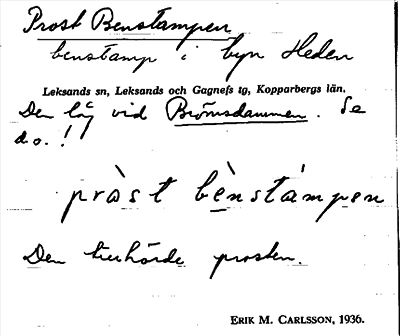 Prost Benstampen
benstamp i byn Heden
Leksands sn, Leksands och Gagnefs tg, Kopparbergs län.
Den låg vid Brömsdammen. Se
d.o.!
pràst bènstámpen
Den tillhörde prosten.
ERIK M. CARLSSON, 1936.